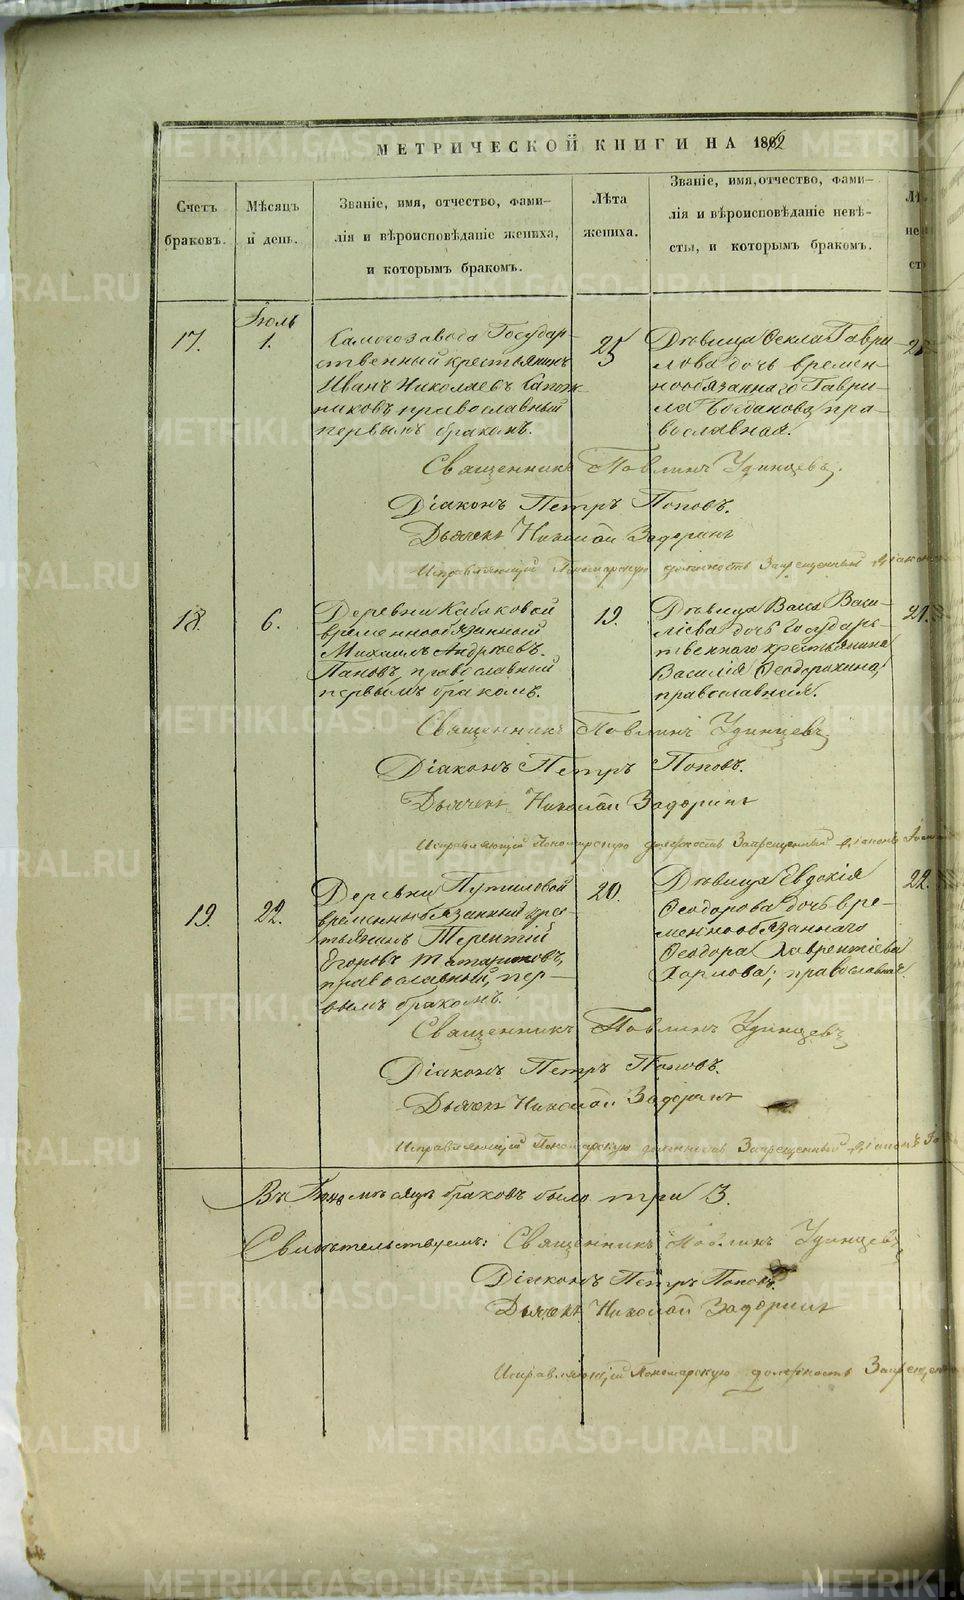 МЕТРИЧЕСКОЙ КНИГИ НА 1862
Счетъ браковъ.
Мѣсяцъ и день.
Званіе, имя, отчество, фами-
лія и вѣроисповѣданіе жениха,
и которымъ бракомъ.
Лѣта жениха.
Званіе, имя, отчество, фами-
лія и вѣроисповѣданіе невѣ-
сты, и которымъ бракомъ.
17.
Іюль
1.
Самогозавода Государ-
ственный крестьянинъ
Иванъ Николаевъ Сапож-
никовъ, православный
первымъ бракомъ.
25
Дѣвица Фекла Гаври-
лова дочь времен-
нообязаннаго Гаври-
ла Богданова, пра-
вославная.
Священникъ Павлинъ Удинцевъ.
Діаконъ Петръ Поповъ.
Дьячекъ Николай Задоринъ
Исправляющій Пономарскую должность Запрещенный діаконъ
18.
6.
Деревни Кабаковой
временнообязанный
Михаилъ Андреевъ
Пановъ, православный
первымъ бракомъ.
19.
Дѣвица Васи-
лієва дочь Государ-
ственнаго крестьянина
Василія Феодорахина,
православная.
21.
Священникъ Павлинъ Удинцевъ
Діаконъ Петръ Поповъ.
Дьячекъ Николай Задоринъ
Исправляющій Пономарскую должность Запрещенный діаконъ
19.
22.
Деревни Путиловой
временнообязанный крес-
тьянинъ Терентій
Егоровъ Татариновъ,
православный, пер-
вымъ бракомъ.
20.
Дѣвица Евдокія
Феодорова дочь вре-
меннообязаннаго
Феодора Лаврентіева
Харлова; православная.
22.
Священникъ Павлинъ Удинцевъ
Діаконъ Петръ Поповъ.
Дьячекъ Николай Задоринъ
Исправляющій Пономарскую должность Запрещенный діаконъ
Въ Іюлѣ мѣсяцѣ браковъ было три 3.
Свидѣтельствуемъ: Священникъ Павлинъ Удинцевъ
Діаконъ Петръ Поповъ.
Дьячекъ Николай Задоринъ
Исправляющій Пономарскую должность
METRIKI.GASO-URAL.RU